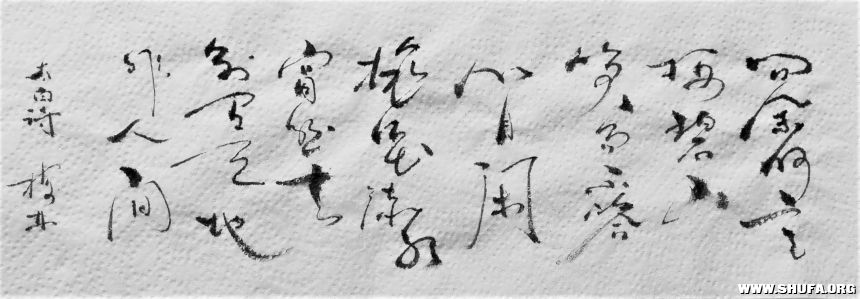 问余何意
栖碧山
笑而不答
心自閑
桃花流水
窅然去
别有天地
非人间
太白诗
WWW.SHUFA.ORG